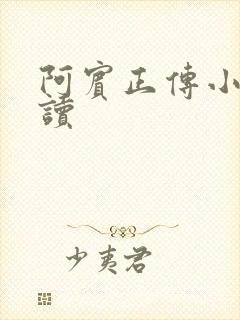 阿賓正傳小
讀
少夷君